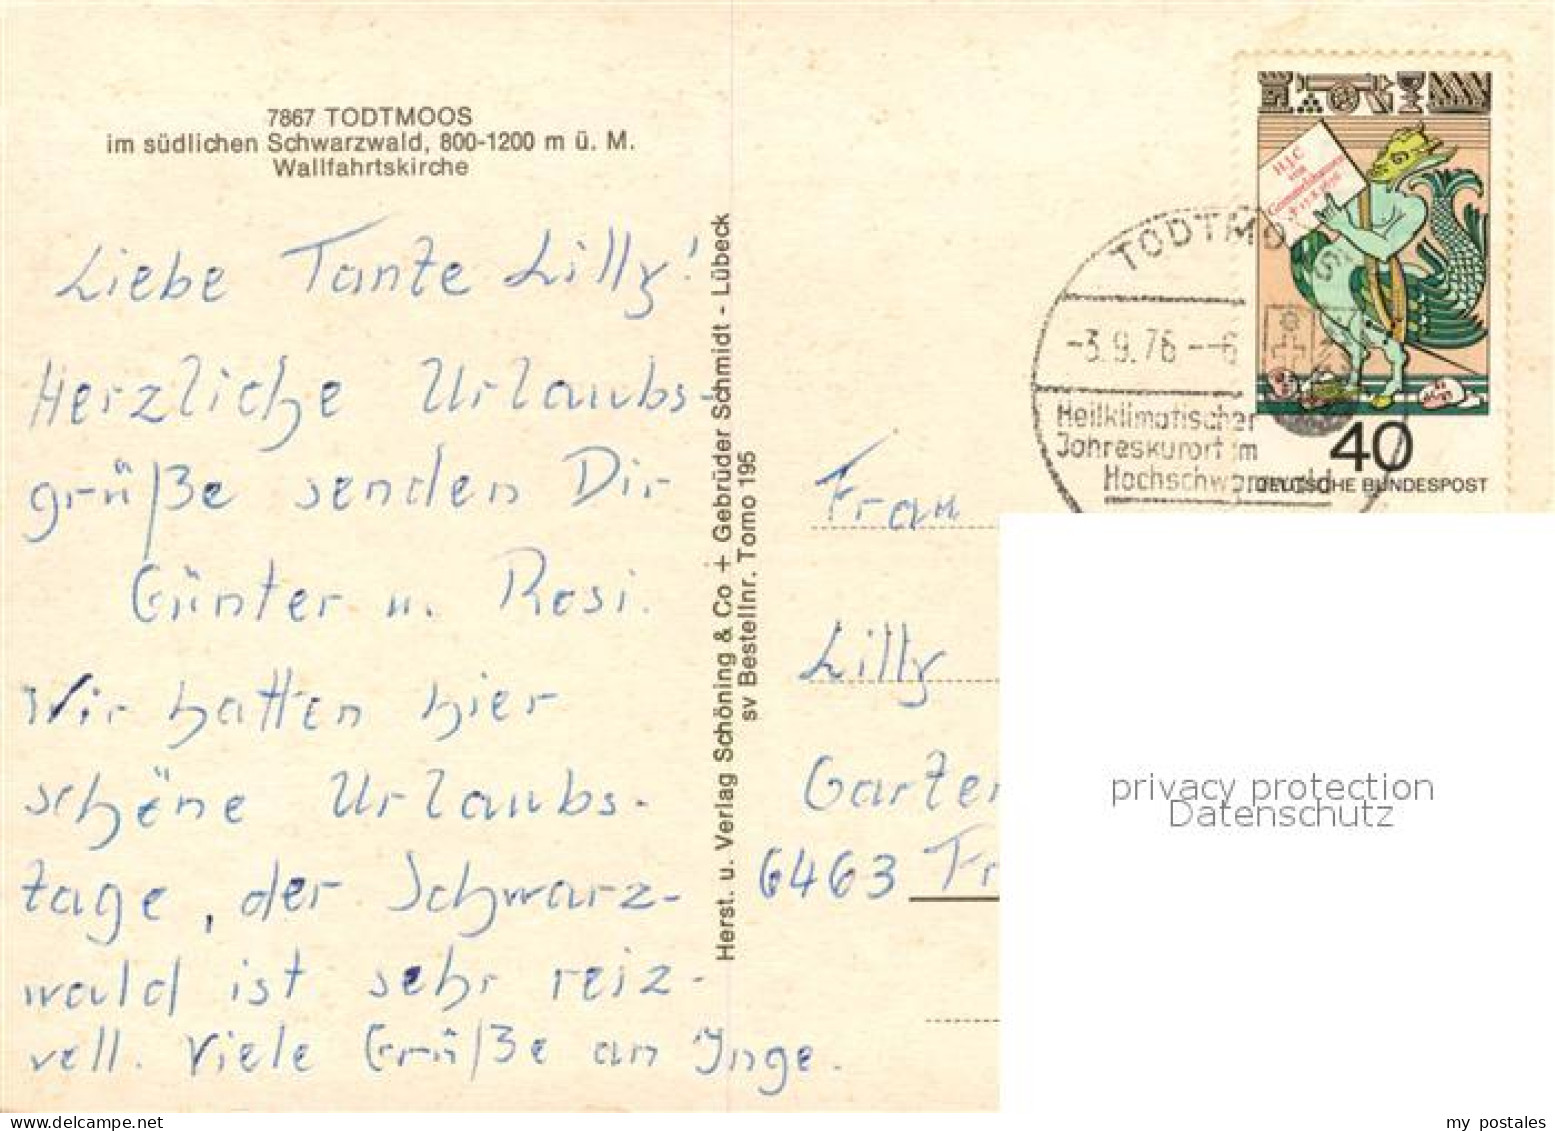 7867 TODTMOOS
im südlichen Schwarzwald, 800-1200 m ü. M.
Wallfahrtskirche
Liebe Tante Lilly!
Herzliche Urlaubs-
grüße senden Dir
Günter u. Rosi.
Wir hatten hier
schöne Urlaubs-
tage, der Schwarz-
wald ist sehr reiz-
voll. Viele Grüße an Inge.
Herst. u. Verlag Schöning & Co + Gebrüder Schmidt - Lübeck
sv Bestellnr. Tomo 195
H.J.C
von
Grimmelshausen
TODTMOOS
-3.9.76--6
Heilklimatischer
Jahreskurort im
Hochschwarzwald
40
DEUTSCHE BUNDESPOST
Frau
Lilly
Garten
6463 Fr
privacy protection
Datenschutz
my postales